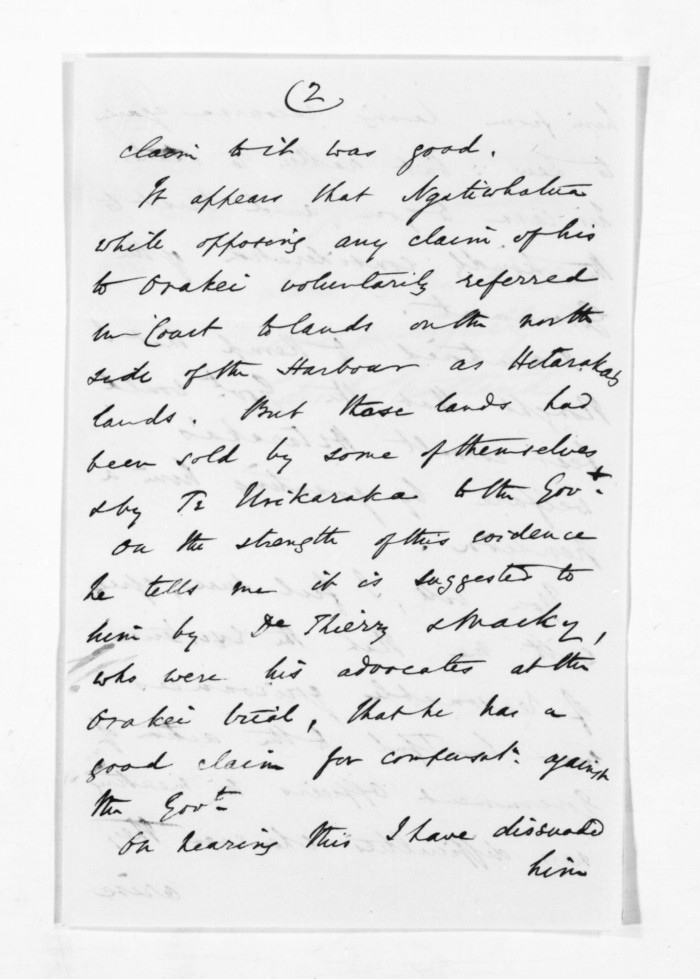 (2)
claim to it was good.
It appears that Ngatiwhatua
while opposing any claim of his
to Orakei voluntarily referred
in Court to lands on the north
side of the Harbour as Hetarakas
lands. But those lands had
been sold by some of themselves
& by Te Urikaraka to the Govt.
On the strength of this evidence
he tells me it is suggested to
him by De Thierry & Macky,
who were his advocates at the
Orakei trial, that he has a
good claim for compensatn. against
the Govt.
On hearing this I have dissuaded
him